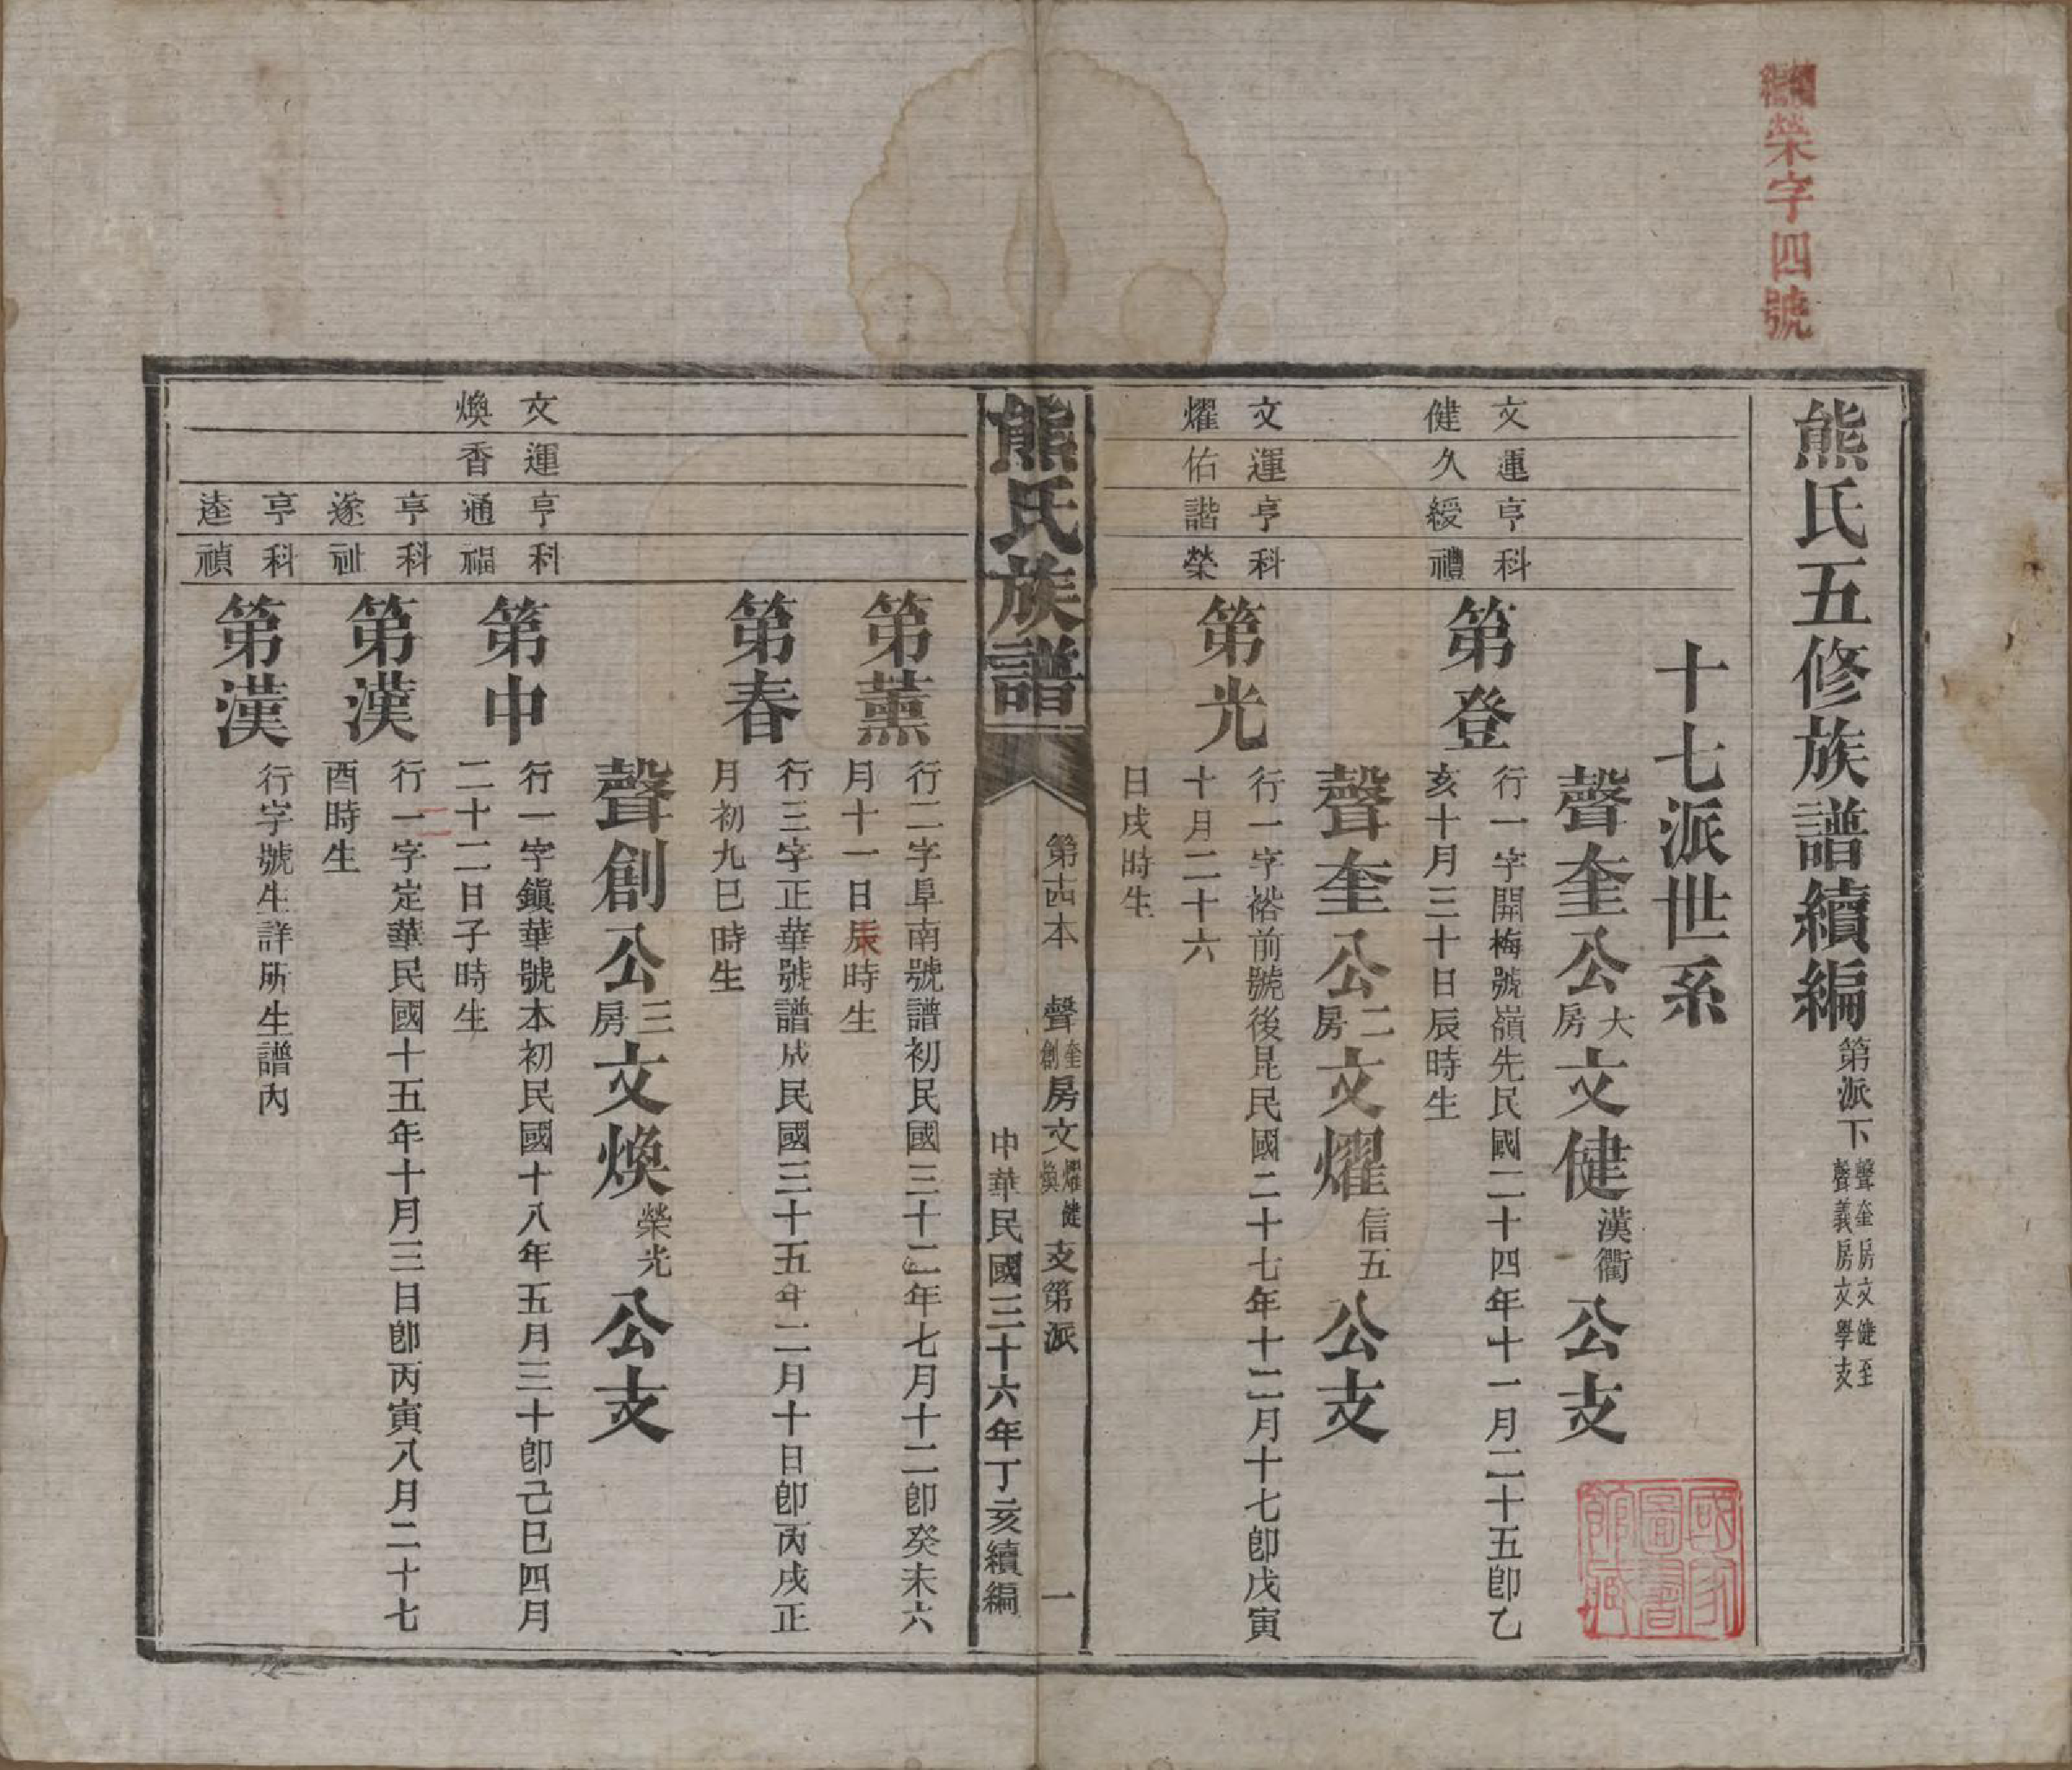 續編榮字四號
熊氏五修族譜續編第派下聲奎房文健至
聲義房文學支
十七派世系
聲奎公大房文健漢衢公支
文健
運久
亨綬
科禮
第登
行一字開梅號嶺先民國二十四年十一月二十五卽乙
亥十月三十日辰時生
聲奎公二房文燿信五公支
文燿
運佑
亨諧
科榮
第光
行一字裕前號後昆民國二十七年十二月十七卽戊寅
十月二十六
日戌時生
國家圖書館藏
熊氏族譜
第十四本
聲奎創房文燿煥健支第派
一
中華民國三十六年丁亥續編
第薰
行二字阜南號譜初民國三十二年七月十二卽癸未六
月十一日辰時生
第春
行三字正華號譜成民國三十五年二月十日卽丙戌正
月初九巳時生
聲創公三房文煥榮光公支
文煥
運香
亨通
科福
第中
行一字鎭華號本初民國十八年五月三十卽己巳四月
二十二日子時生
亨遂
科祉
第漢
行一字定華民國十五年十月三日卽丙寅八月二十七
酉時生
二
亨逵
科禎
第漢
行字號生詳所生譜內